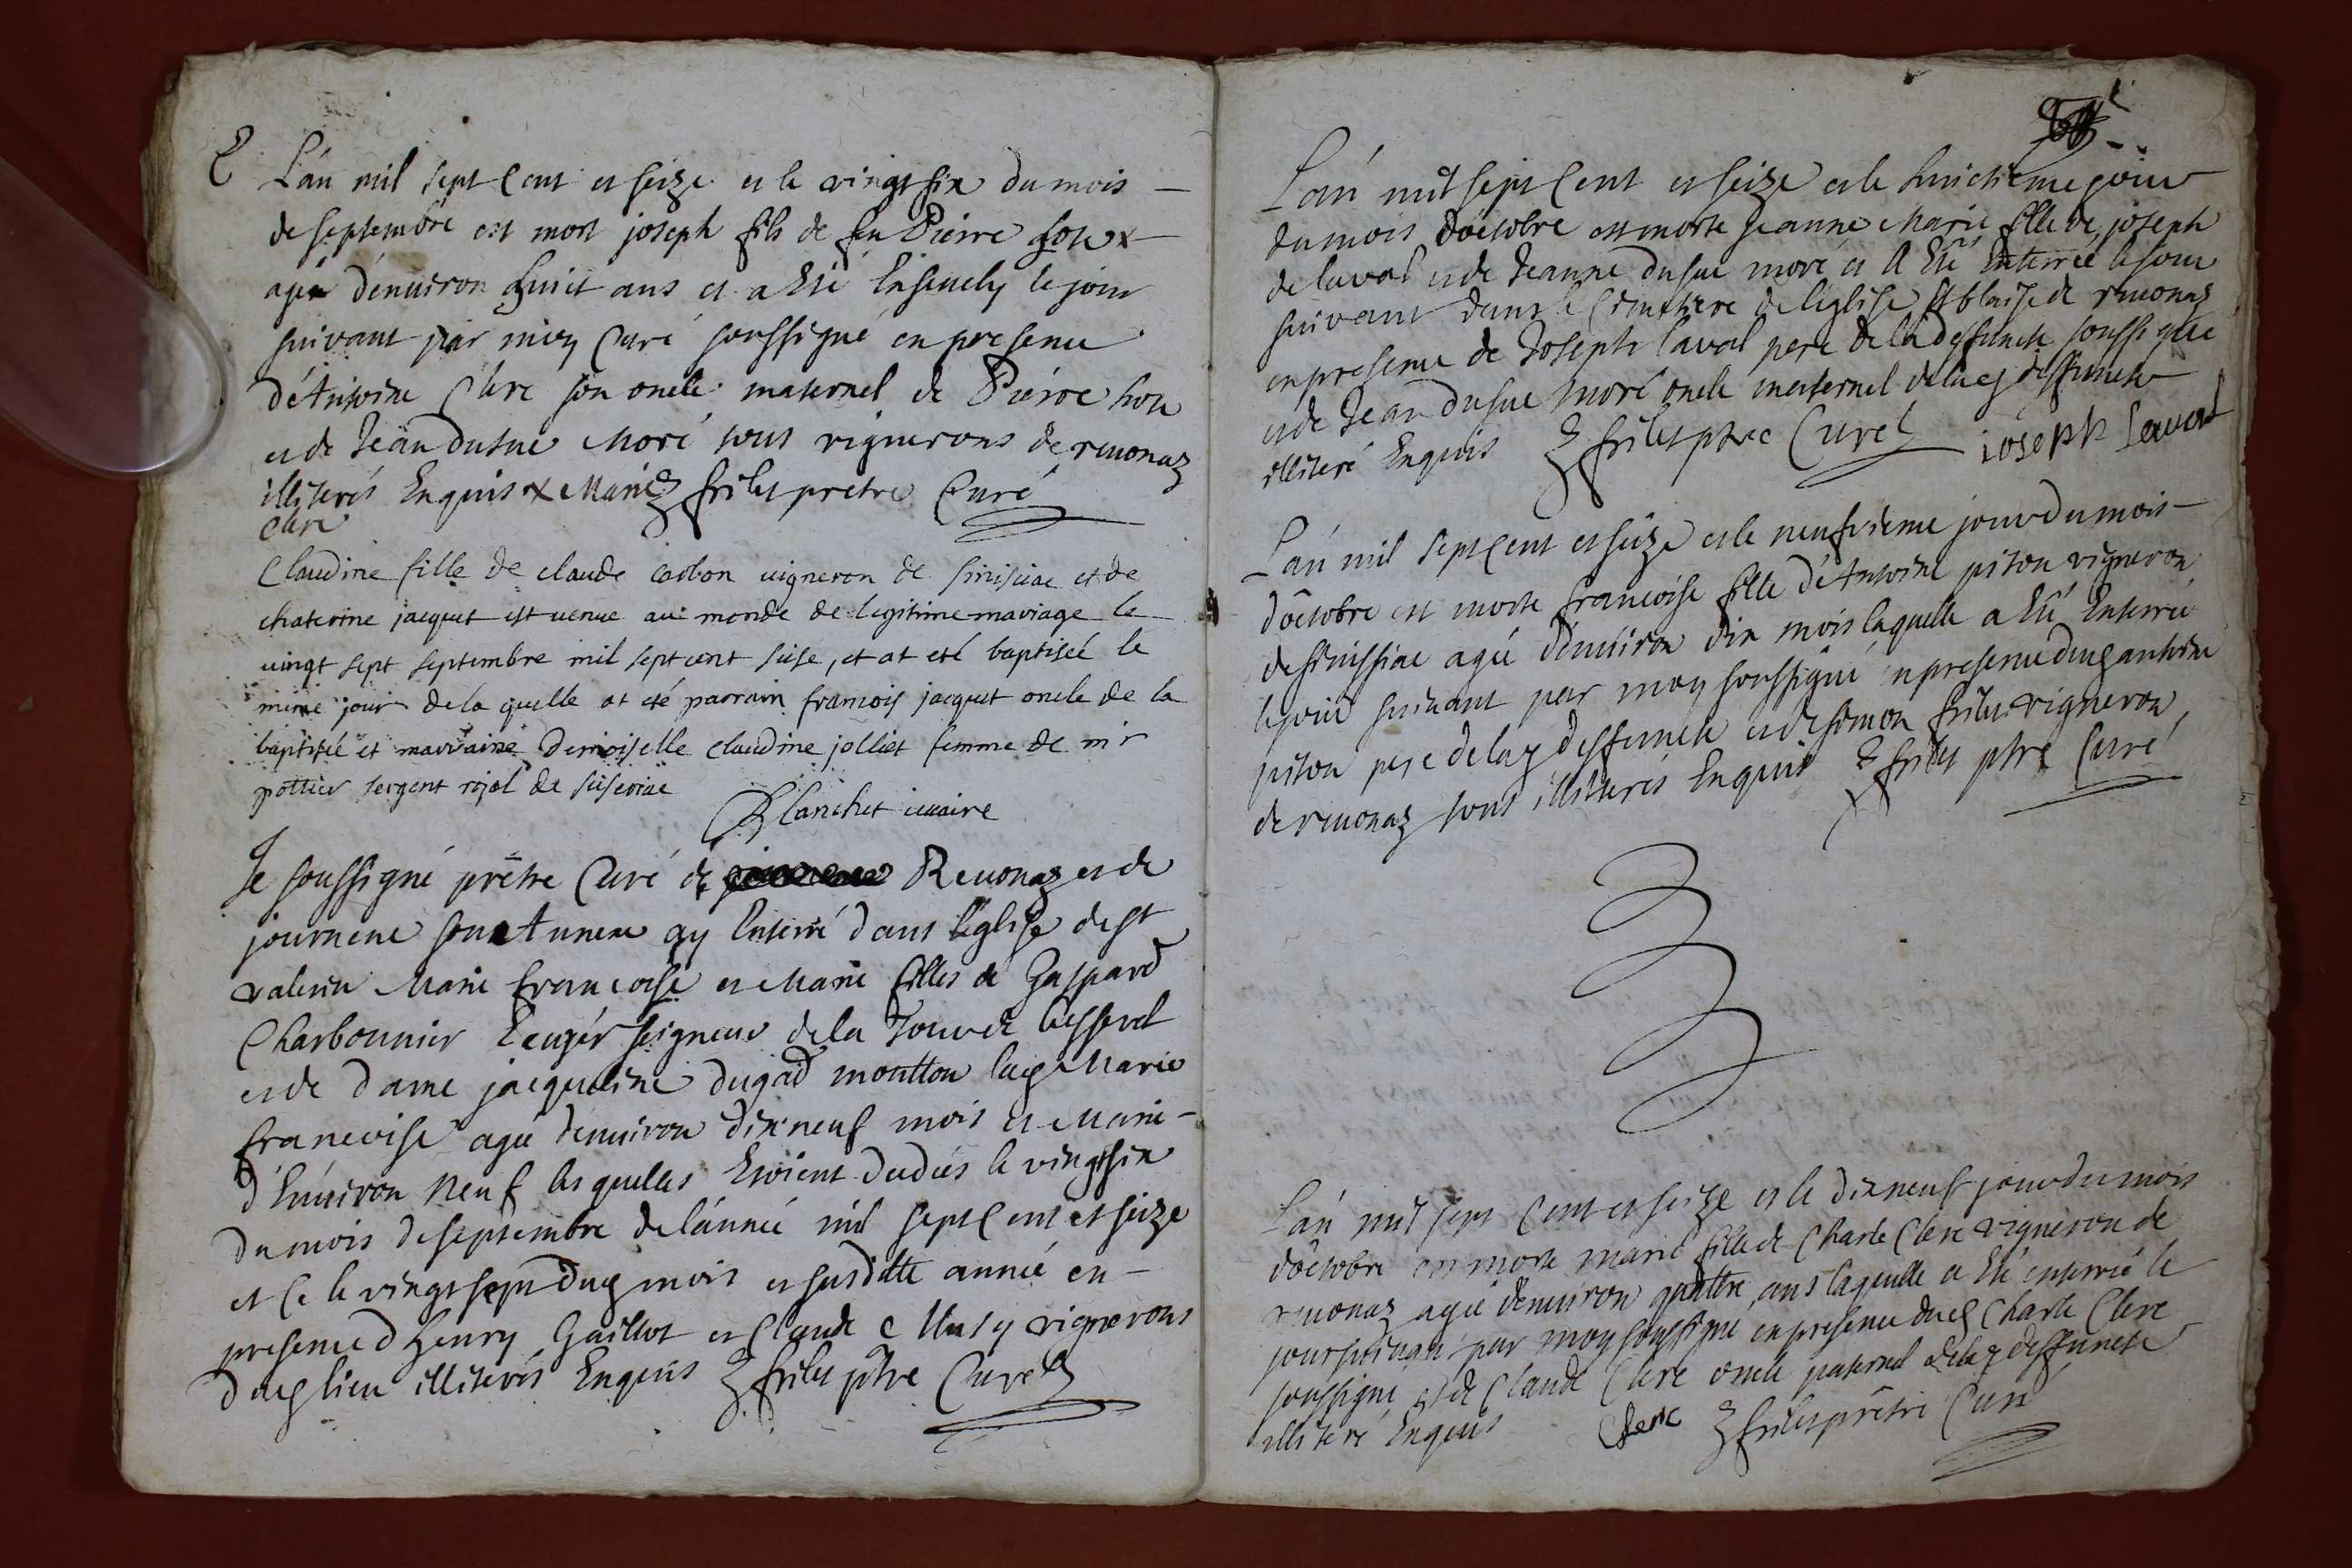 L'an mil sept Cent et seize et le vingt six du mois
de septembre est mort joseph fils de feu Pierre hon x
agé d'enuiron huict ans et a Eté Ensevely le jour
suivant par moy Curé soussigné en presence
d'Antoine Clerc son oncle maternel de Pierre hon
et de Jean dusue Moré tous vignerons de reuonaz
illiterés Enquis x Marie frilet pretre Curé
Clerc
Claudine fille de claude carbon uigneron de sinisiac et de
chaterine jacquet est uenue au monde de legitime mariage le
uingt sept septembre mil sept cent seise, et at eté baptiseé le
mime jour de la quelle at eté parrain francois jacquet oncle de la
baptiseé et marraine Demoiselle claudine jolliet femme de mr
pottier sergent rojal de
Blanchet uicaire
Je soussigné prêtre Curé de Reuonaz et de
journene son Annexe ay Enterré dans l'église de st
valerin Marie francoise et Marie filles de Gaspard
Charbonnier Ecuyer seigneur de la Tour de
et de dame jacqueline dugad moutton lad Marie
francoise agée d'enuiron dix neuf mois et Marie
d'Enuiron neuf les quelles Etoient decedés le vingt six
du mois de septembre de l'année mil sept Cent et seize
et Ce le vingt sept dud mois et susditte année en
presence d'henry Gaillot et Claude vignerons
dud lieu illiterés Enquis frilet ptre Curé
L'an mil sept Cent et seize et le huictieme jour
du mois d'octobre est morte jeanne Marie fille de joseph
de laval et de Jeanne dusue moré et a Eté Enterrée le jour
suivant dans le Cimetiere de l'eglise st blaise de reuonaz
en presence de Joseph laval pere de la deffuncte soussigné
et de Jean dusue moré oncle maternel de lad deffuncte
illiteré Enquis frilet ptre Curé joseph laval
L'an mil sept Cent et seize et le neufvieme jour du mois
d'octobre est morte francoise fille d'Antoine piton vigneron
de sinissiac agée d'enuiron dix mois laquelle a Eté Enterrée
le jour suiuant par moy soussigné en presence dud anthoine
piton pere de lad deffuncte et de simon frilet vigneron
de reuonaz tous illiterés Enquis frilet ptre Curé
L'an mil sept Cent et seize et le dix neuf jour du mois
d'octobre est morte marie fille de Charle Clerc vigneron de
reuonaz agée d'enuiron quattre ans laquelle a Eté enterrée le
jour suiuant par moy soussigné en presence dud Charle Clerc
soussigné et de Claude Clerc oncle paternel de lad deffuncte
illiteré Enquis Clerc frilet prêtre Curé